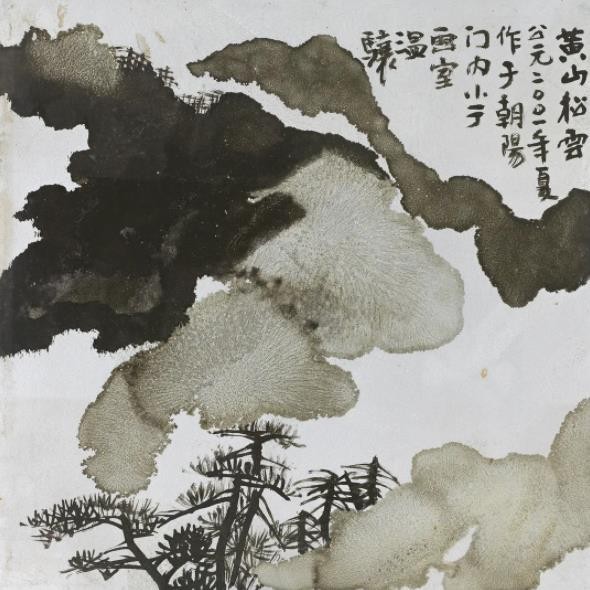 黄山松雲
公元二〇〇一年夏
作于朝陽
门内小
室
温
驤